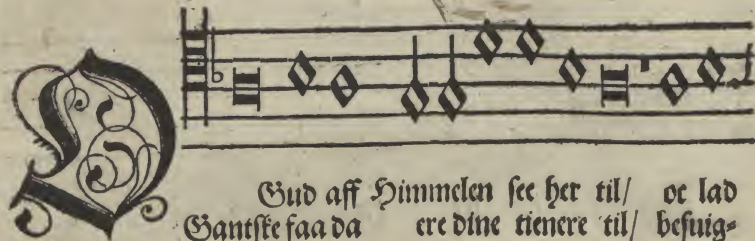 O Gud aff Himmelen see her til/ oc lad
Gantske faa da ere dine tienere til/ besuig⸗